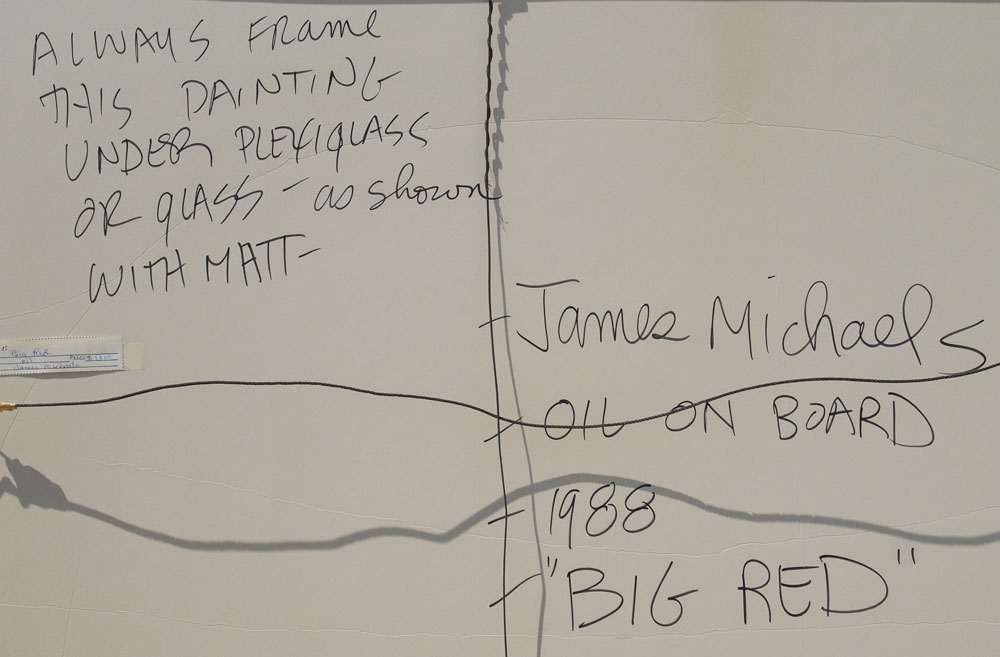 ALWAYS FRAME
THIS PAINTING
UNDER PLEXIGLASS
OR GLASS - as shown
WITH MATT -
- James Michaels
- OIL ON BOARD
- 1988
- "BIG RED"
Big Red